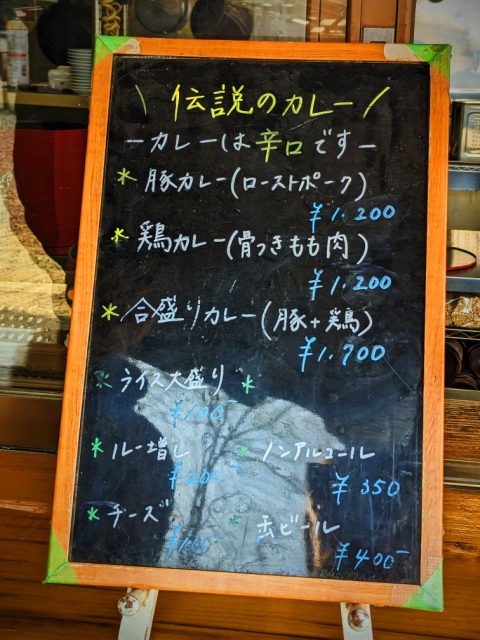 \ 伝説のカレー /
ーカレーは辛口ですー
* 豚カレー(ローストポーク)
¥1.200
* 鶏カレー(骨つきもも肉)
¥1.200
* 合盛りカレー(豚+鶏)
¥1.700
* ライス大盛り *
¥100-
* ルー増し
¥200-
* ノンアルコール
¥350
* チーズ
* 缶ビール
¥400-